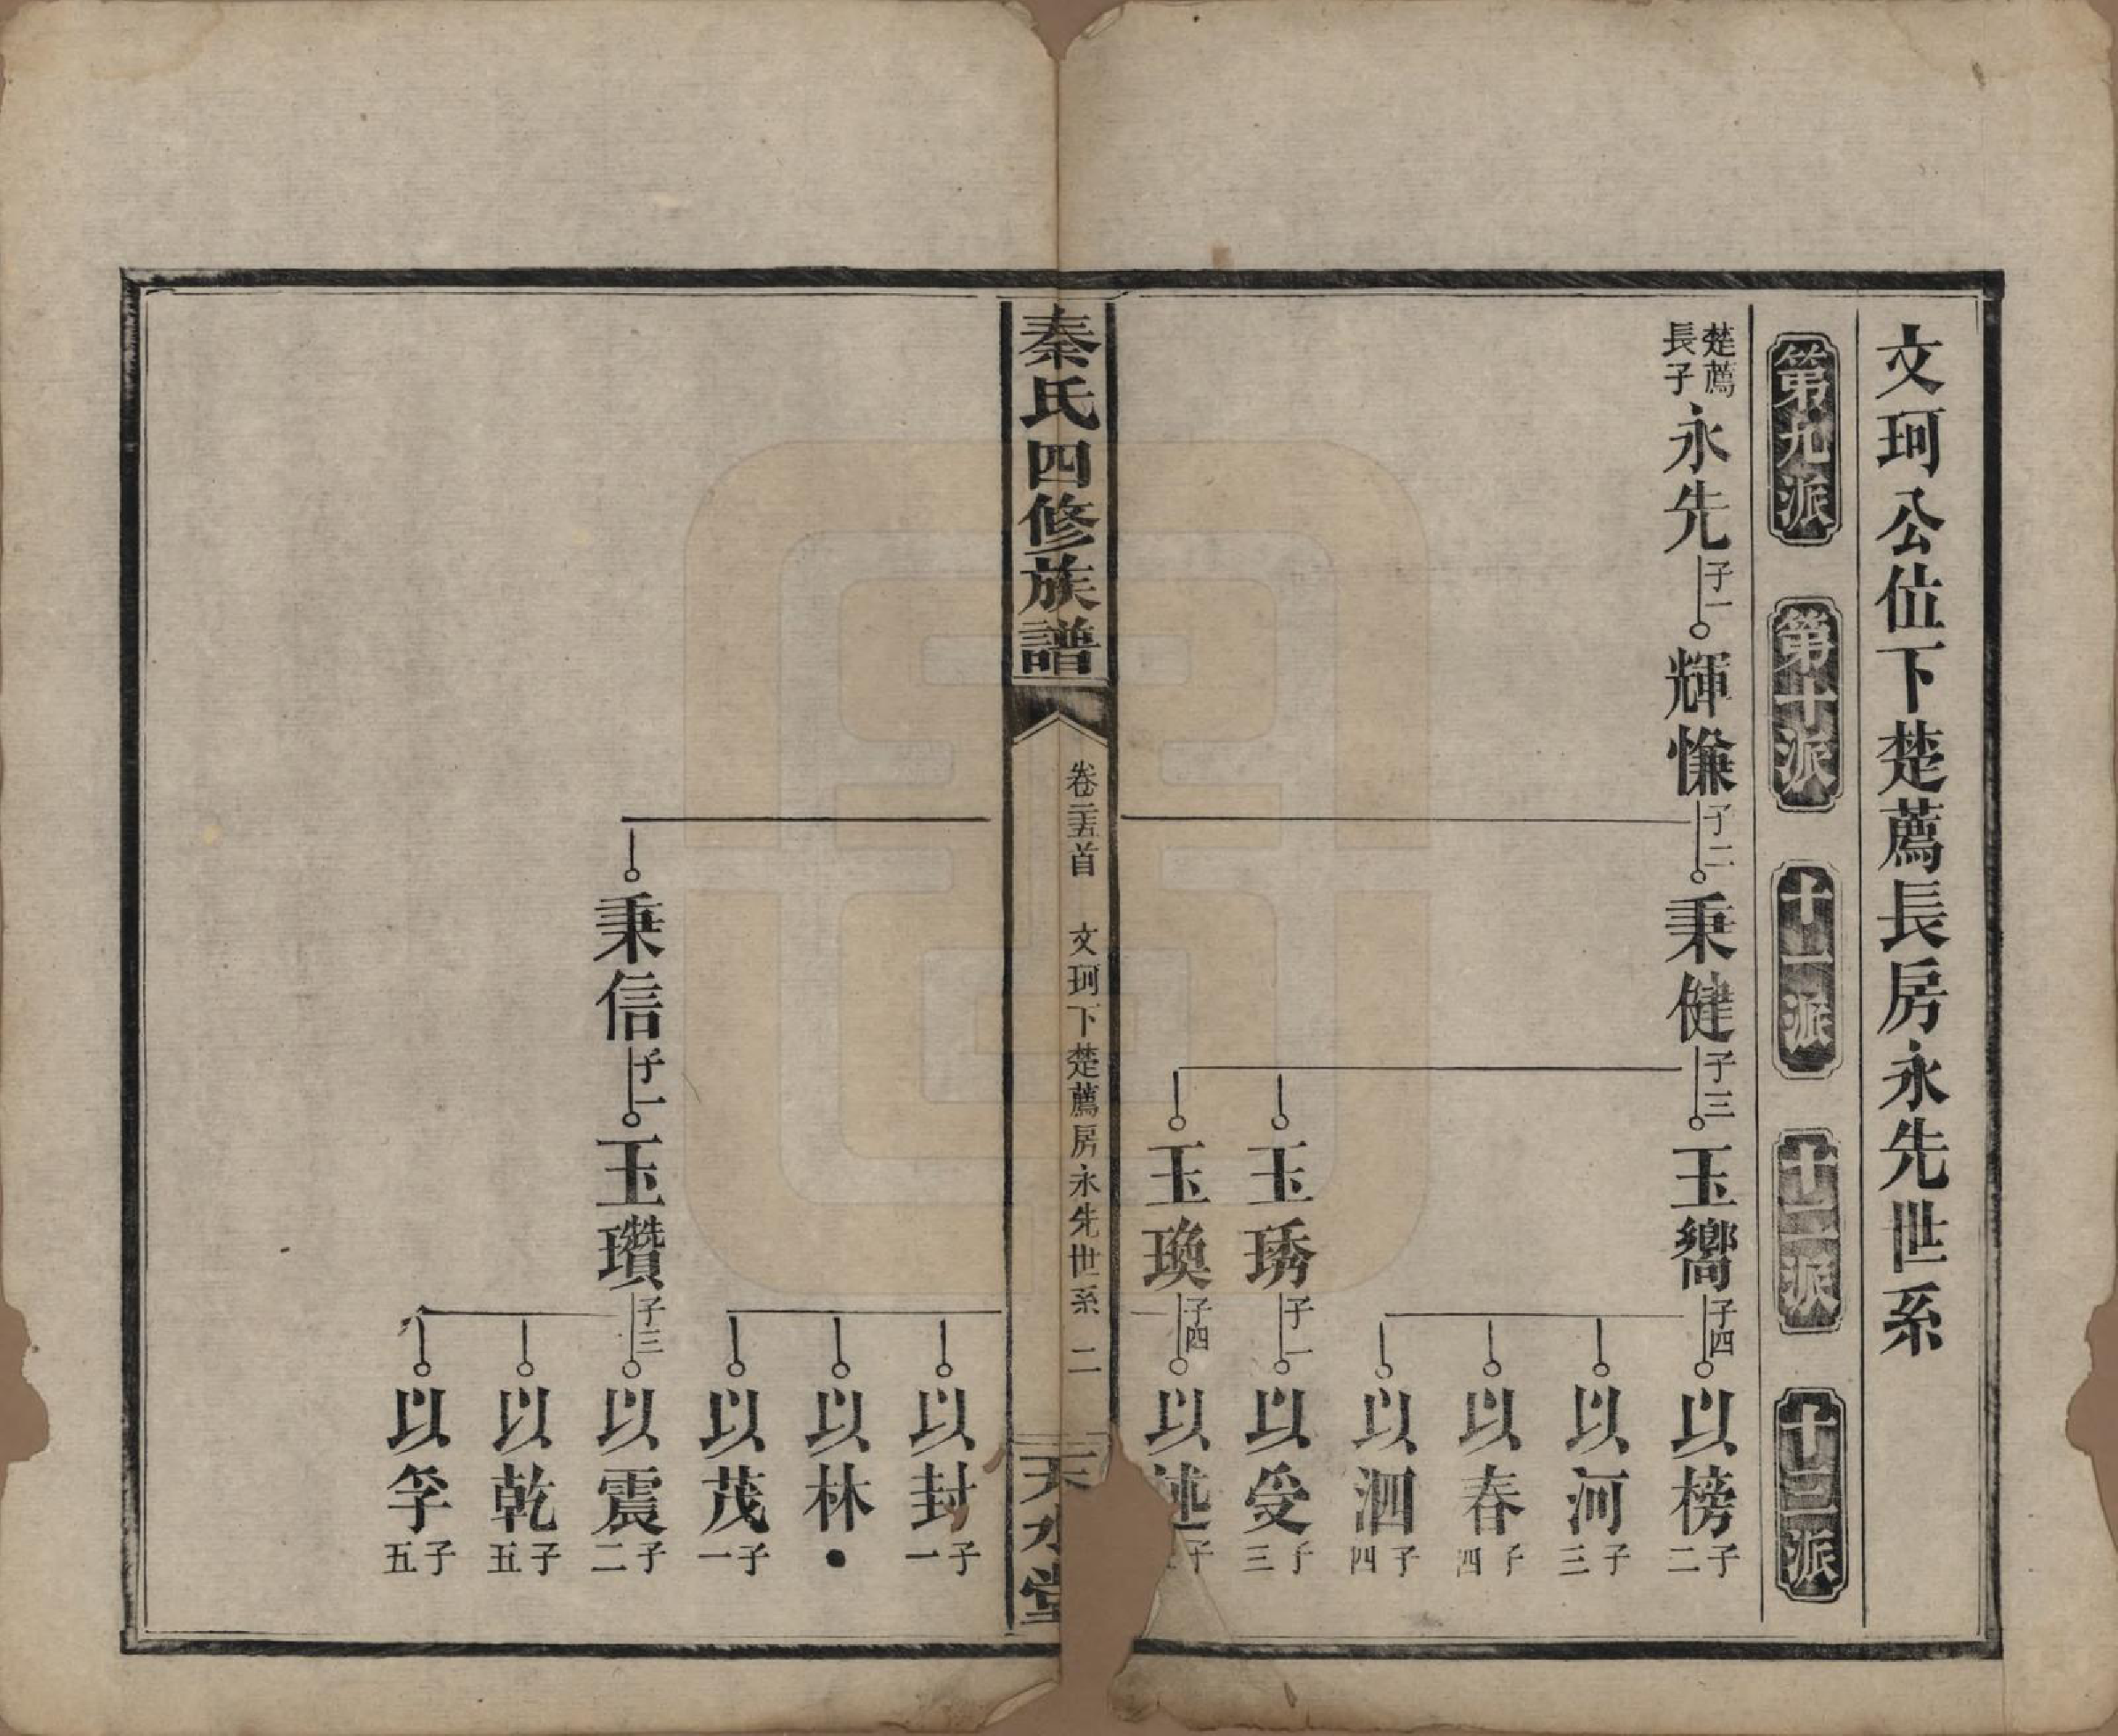 文珂公位下楚薦長房永先世系
第九派 第十派 十一派 十二派 十三派
楚薦長子永先 子一 輝慊 子二 秉健 子三 玉嚮 子四 以榜 子二
以河 子三
以春 子四
以泗 子四
玉琇 子一 以受 子三
玉瑍 子四 以 子
秦氏四修族譜 卷二十五首 文珂下楚薦房永先世系 二 天水堂
以封 子一
以林
以茂 子一
秉信 子一 玉瓚 子三 以震 子二
以乾 子五
以孚 子五